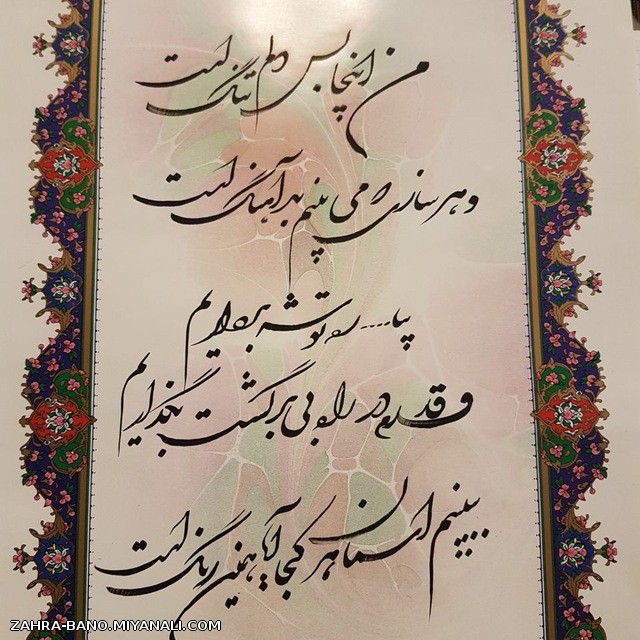 من اینجا بس دلم تنگ است
و هر سازی که می بینم بد آهنگ است
بیا.... ره توشه برداریم
و قدم در راه بی برگشت بگذاریم
ببینم آسمان هر کجا آیا همین رنگ است
ZAHRA-BANO.MIYANALI.COM